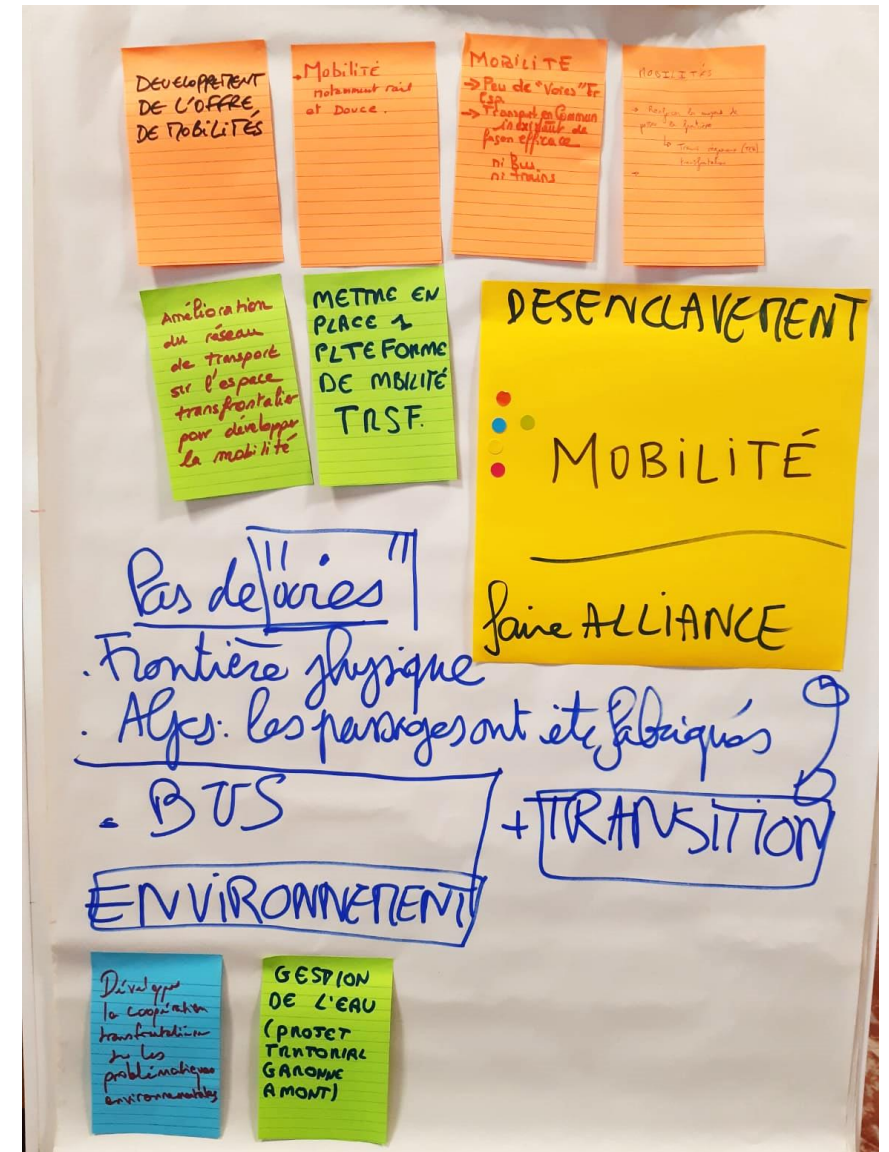 DEVELOPPEMENT
DE L'OFFRE,
DE MOBILITÉS
→ Mobilité
notamment rail
et Douce.
MOBILITE
→ Peu de "Voies" Tr
Esp
→ Transport en Commun
inexistant de
façon efficace
ni Bus
ni trains
MOBILITÉS
Amélioration
du réseau
de transport
sur l'espace
transfrontalier
pour développer
la mobilité
METTRE EN
PLACE 1
PLTEFORME
DE MBILITÉ
TRSF.
DESENCLAVEMENT
MOBILITÉ
faire ALLIANCE
Pas de "voies"
. Frontière physique
. Alpes: les passages ont été fabriqués
. BUS
+ TRANSITION
ENVIRONNEMENT
Développer
la coopération
transfrontalière
sur les
problématiques
environnementales
GESTION
DE L'EAU
(PROJET
TRNTORIAL
GARONNE
AMONT)